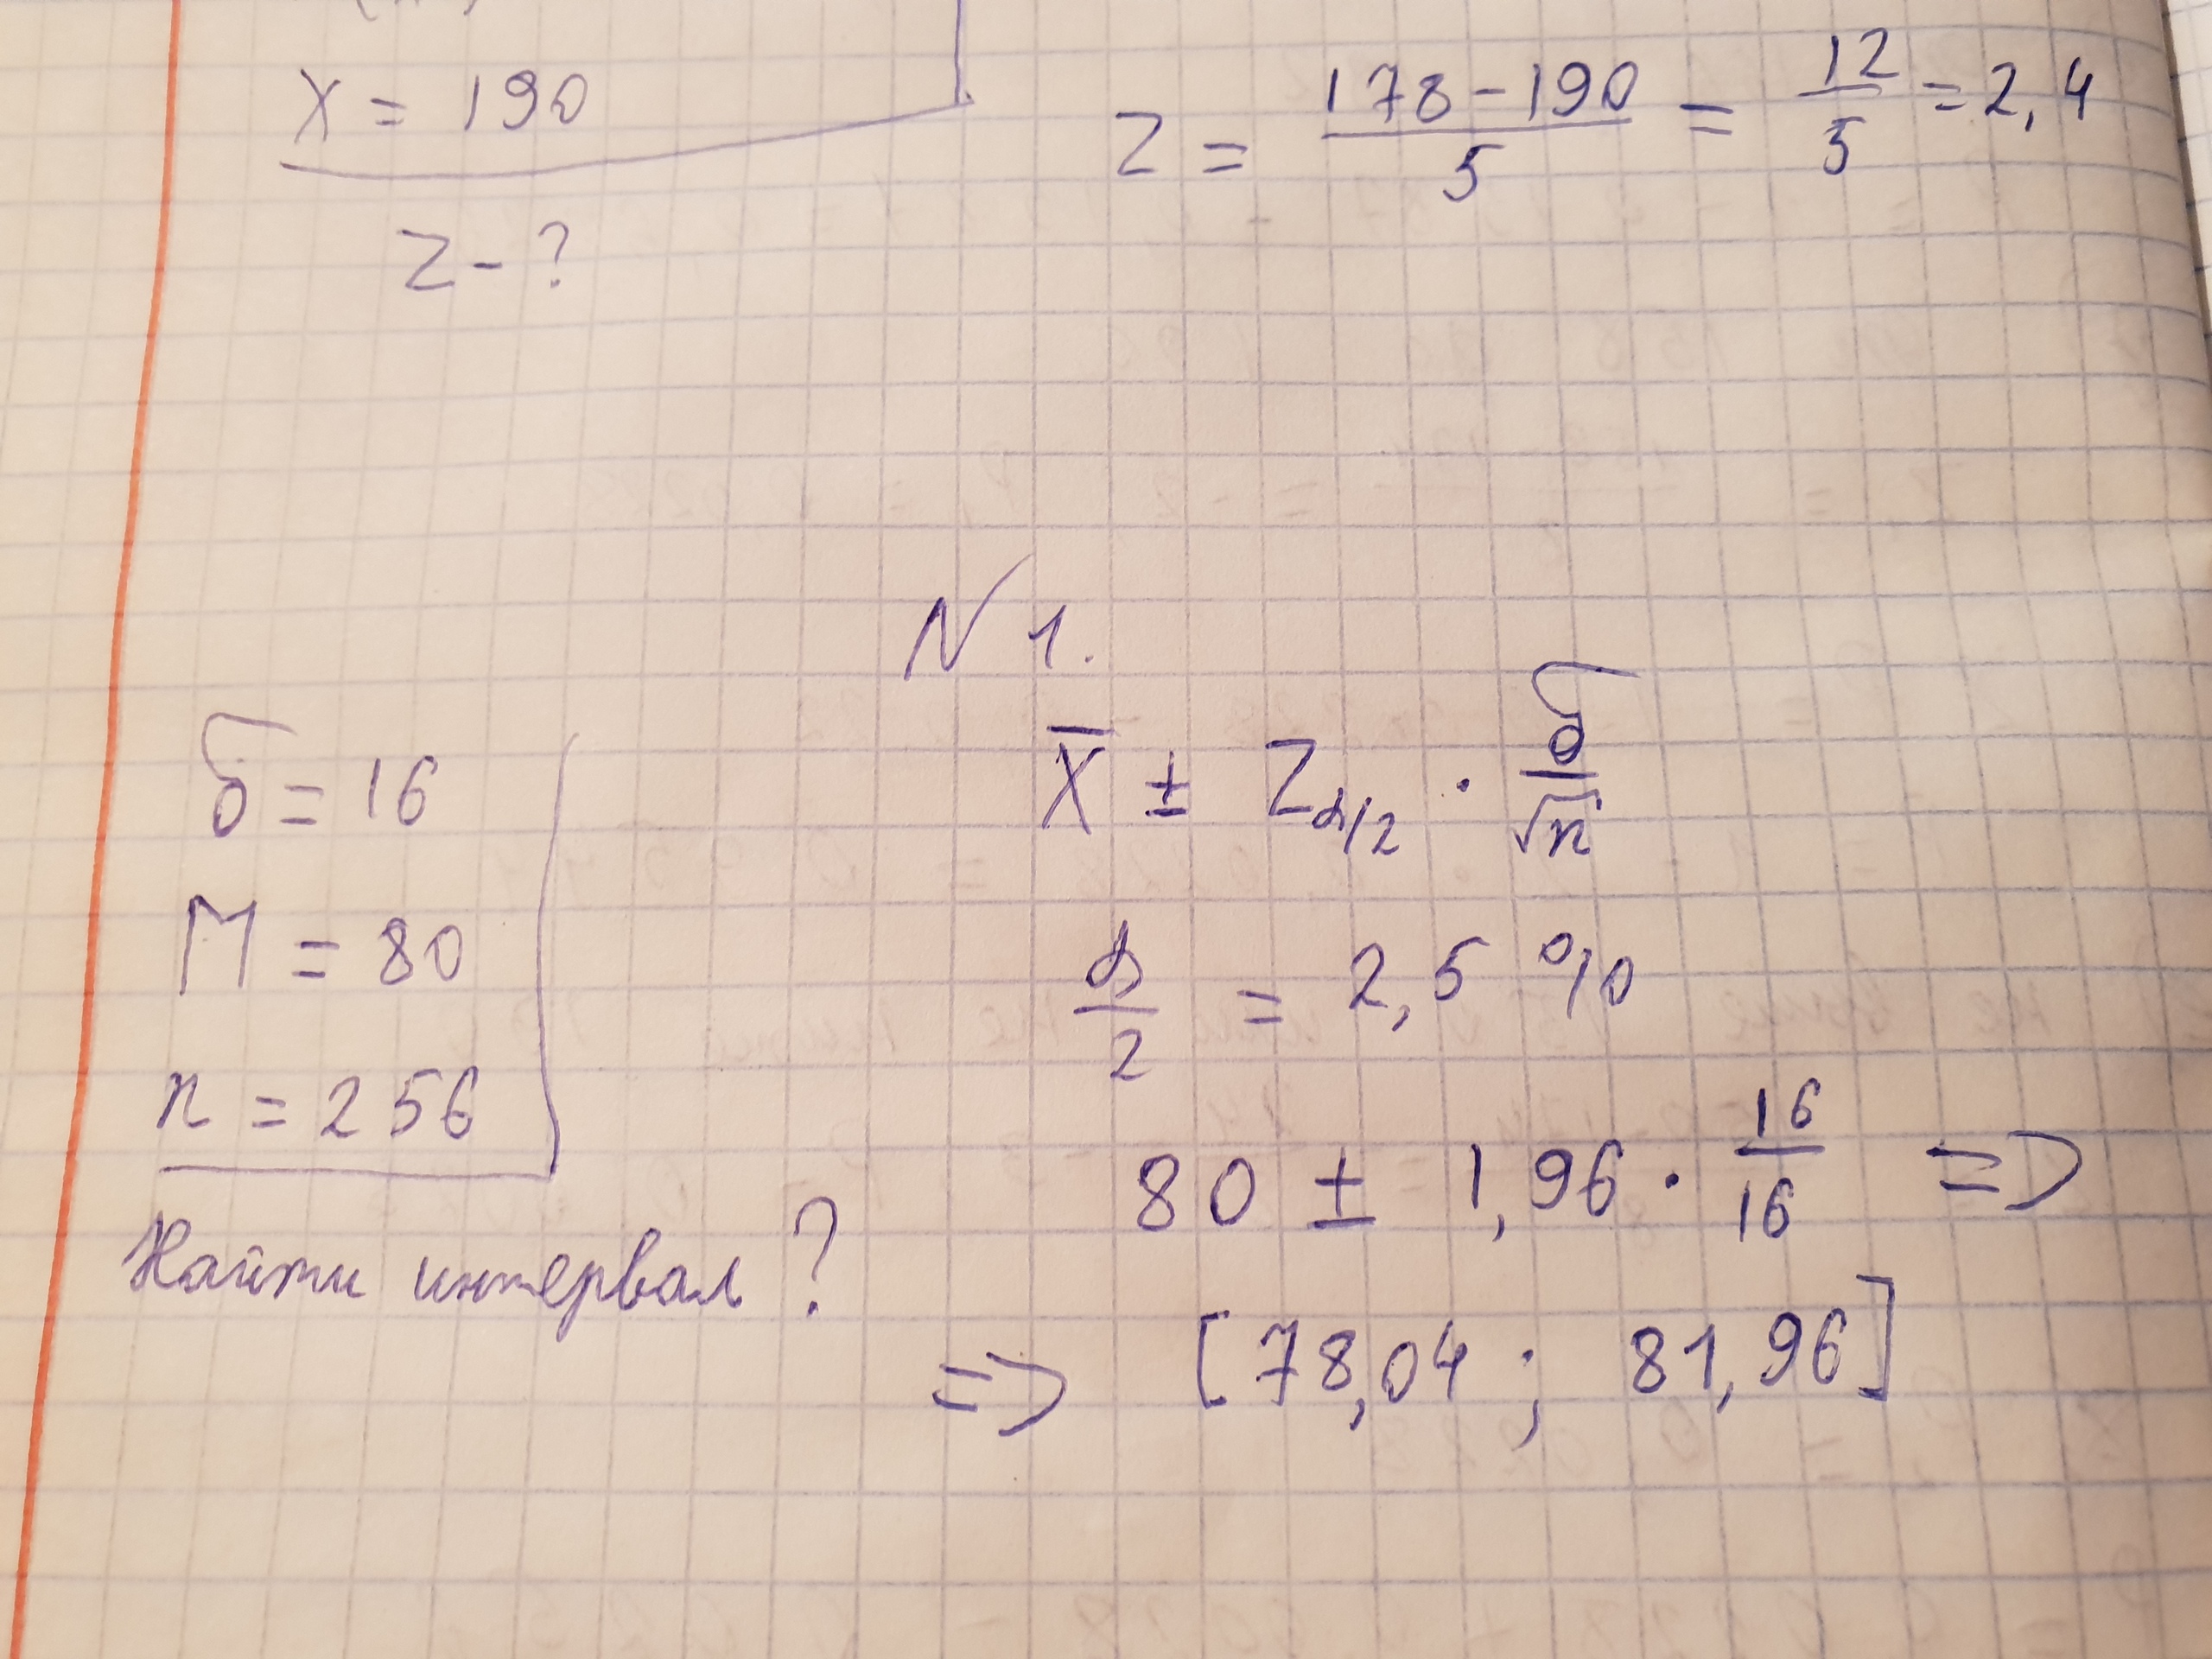 X = 190
Z = 178-190 / 5 = 12 / 5 = 2,4
Z - ?
N 1.
X̄ ± Zα/2 · σ / √n
σ = 16
M = 80
n = 256
Найти интервал ?
α / 2 = 2,5 %
80 ± 1,96 · 16 / 16 =>
=> [78,04 ; 81,96]